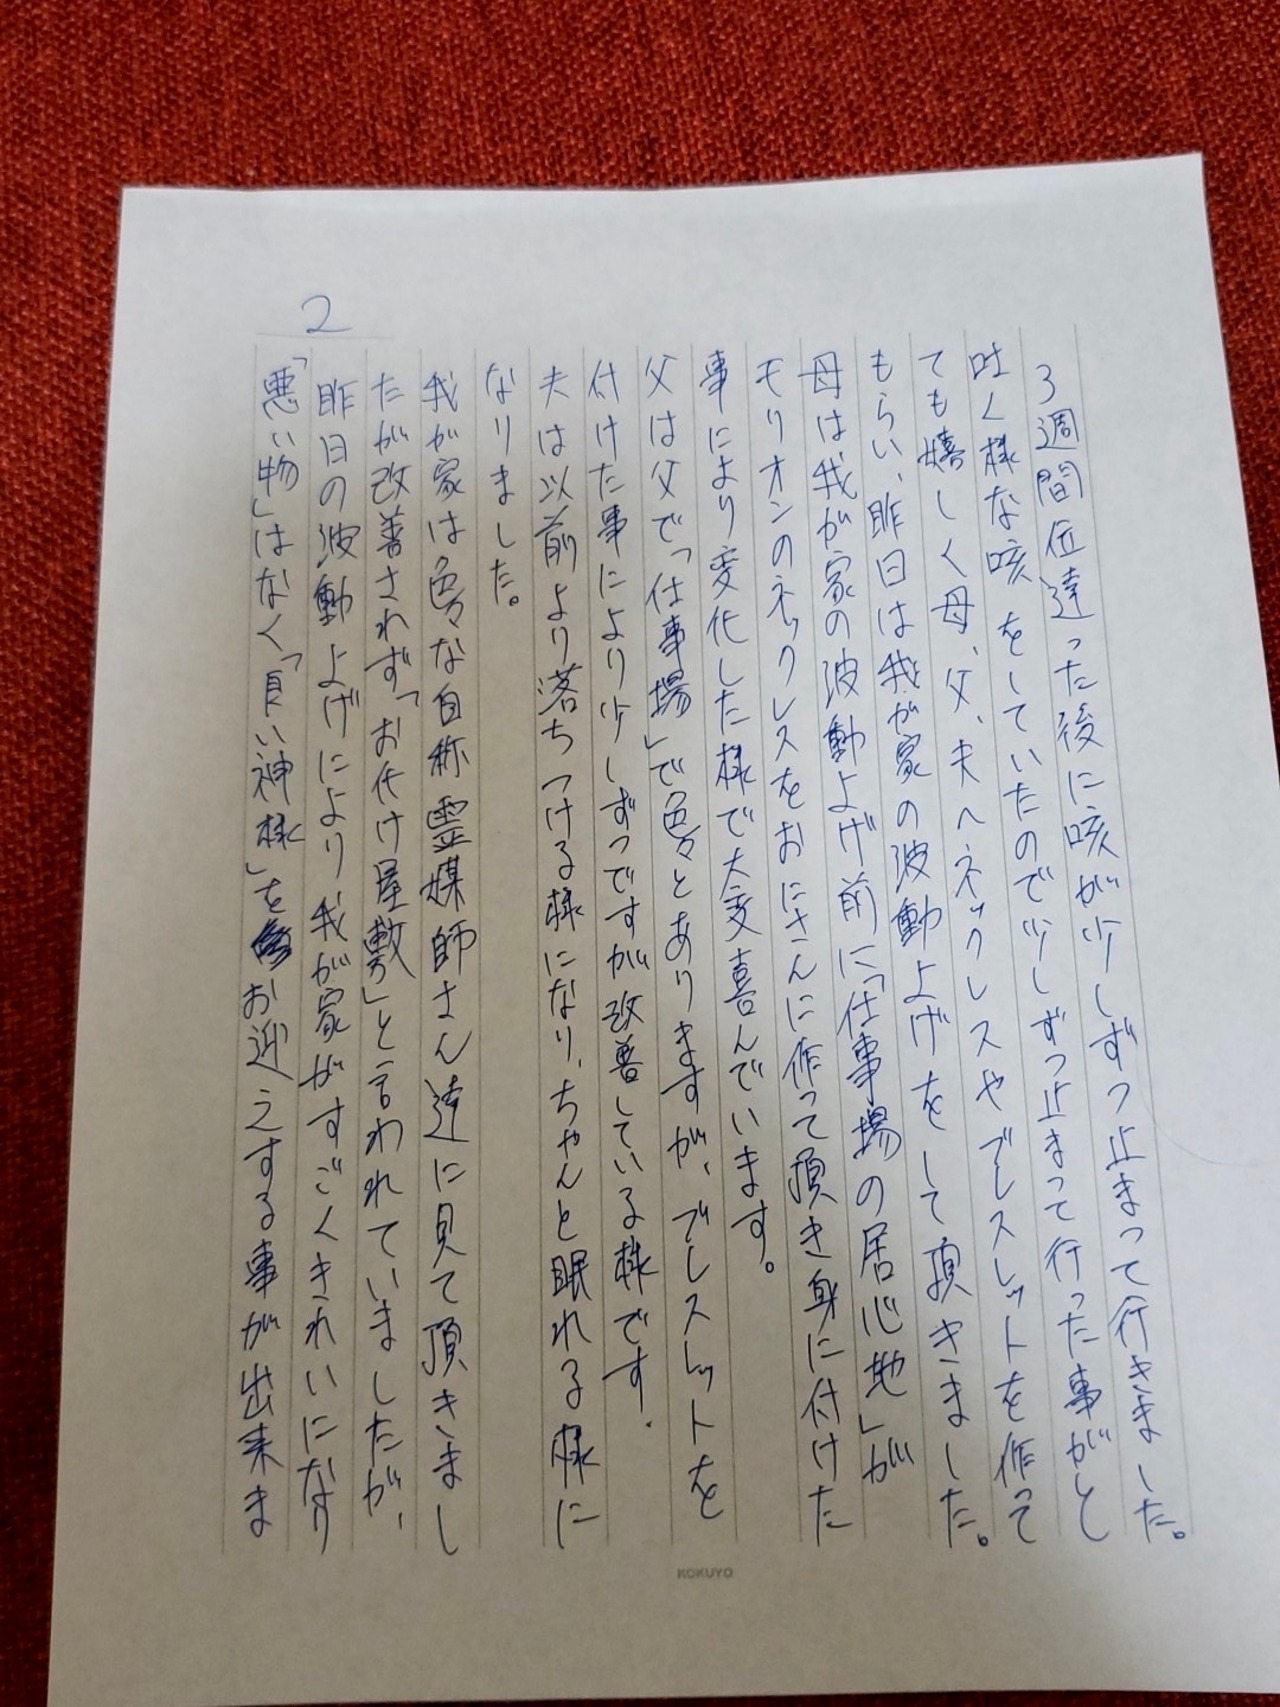 3週間位達った後に咳が少しずつ止まって行きました。
吐く様な咳をしていたので少しずつ止まって行った事がと
ても嬉しく母、父、夫へネックレスやブレスレットを作って
もらい、昨日は我が家の波動上げをして頂きました。
母は我が家の波動上げ前に「仕事場の居心地」が
モリオンのネックレスをおにさんに作って頂き身に付けた
事により変化した様で大変喜んでいます。
父は父で「仕事場」で色々とありますが、ブレスレットを
付けた事により少しずつですが改善している様です.
夫は以前より落ちつける様になり、ちゃんと眠れる様に
なりました。
我が家は色々な自称霊媒師さん達に見て頂きまし
たが改善されず「お化け屋敷」と言われていましたが、
昨日の波動上げにより我が家がすごくきれいになり
「悪い物」はなく「良い神様」をお迎えする事が出来ま
2
KOKUYO